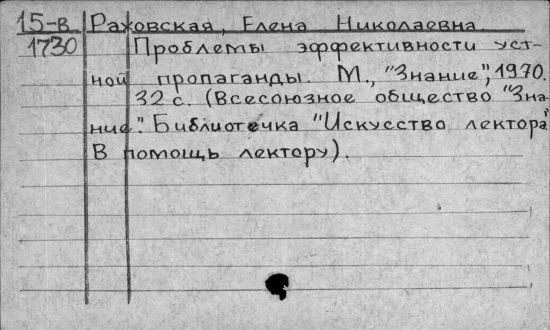 15-В Раховская, Елена Николаевна.
1730 Проблемы эффективности уст-
ной пропаганды. М., "Знание", 1970.
32 с. (Всесоюзное общество "Зна-
ние". Библиотечка "Искусство лектора"
В помощь лектору).